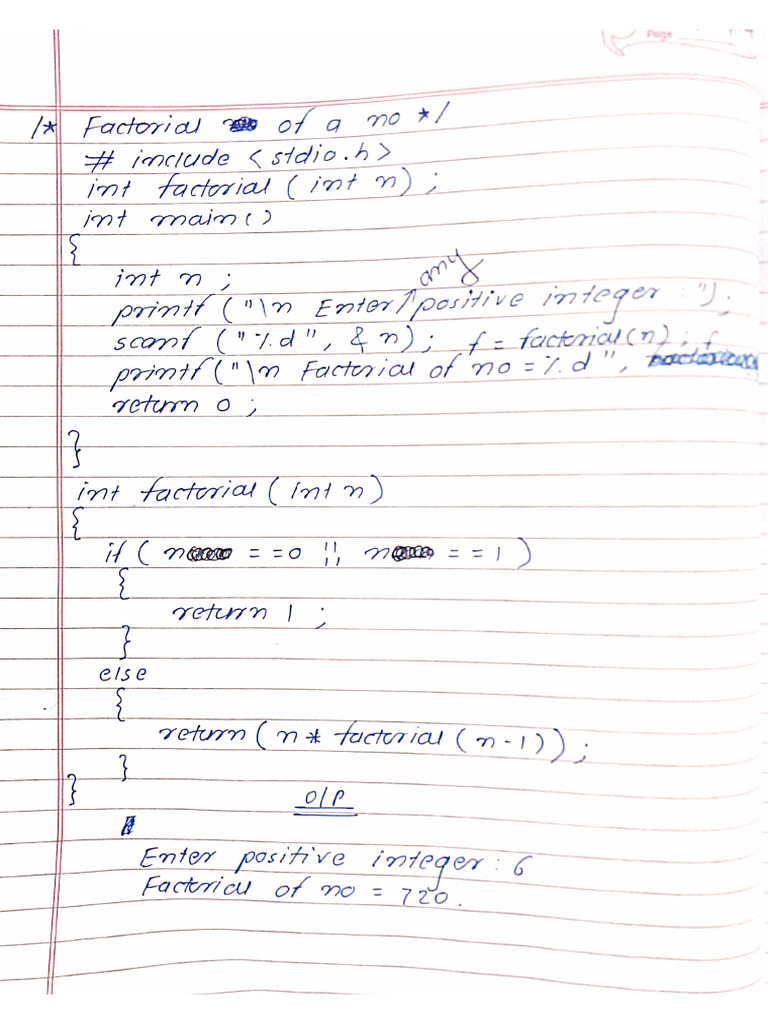 Page
/* Factorial of a no */
# include <stdio.h>
int factorial (int n) ;
int main()
{
int n ;
printf ("\n Enter any positive integer : ") ;
scanf ("%d", & n) ; f = factorial(n) ; f
printf("\n Factorial of no = %d ",
return 0 ;
}
int factorial (int n)
{
if ( n == 0 || n == 1 )
{
return 1 ;
}
else
{
return (n * factorial (n-1)) ;
}
}
O/P
Enter positive integer : 6
Factorial of no = 720.